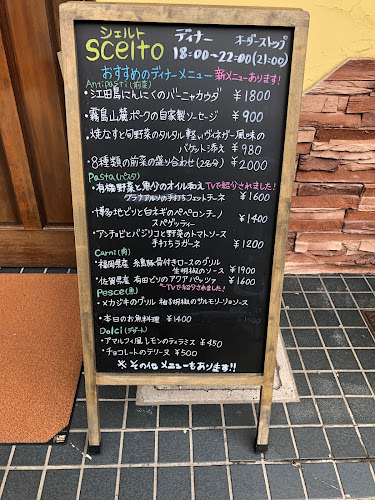 シェルト ディナー オーダーストップ
scelto 18:00〜22:00(21:00)
おすすめのディナーメニュー 新メニューあります!
Antipasti(前菜)
・江田島にんにくのバーニャカウダ ¥1800
・霧島山麓ポークの自家製ソーセージ ¥900
・焼なすと旬野菜のタルタル 軽いヴィネガー風味の
バケット添え ¥980
・8種類の前菜の盛り合わせ(2名分) ¥2000
Pasta(パスタ)
・有機野菜と魚介のオイル和え TVで紹介されました!
グラナアルソの手打ちフェットチーネ ¥1600
・博多地どりと白ネギのペペロンチーノ
スパゲッティー ¥1400
・アンチョビとバジリコと野菜のトマトソース
手打ちラガーネ ¥1200
Carni(肉)
・福岡県産 糸島豚骨付きロースのグリル
生胡椒のソース ¥1900
・佐賀県産 有田どりのアクアパッツァ ¥1600
Pesce(魚) 〜TVで紹介されました!
・メカジキのグリル 柚子胡椒のサルモリーリョソース
・本日のお魚料理 ¥1400
Dolci(デザート)
・アマルフィ風レモンのティラミス ¥450
・チョコレートのテリーヌ ¥500
※ その他メニューもあります!!